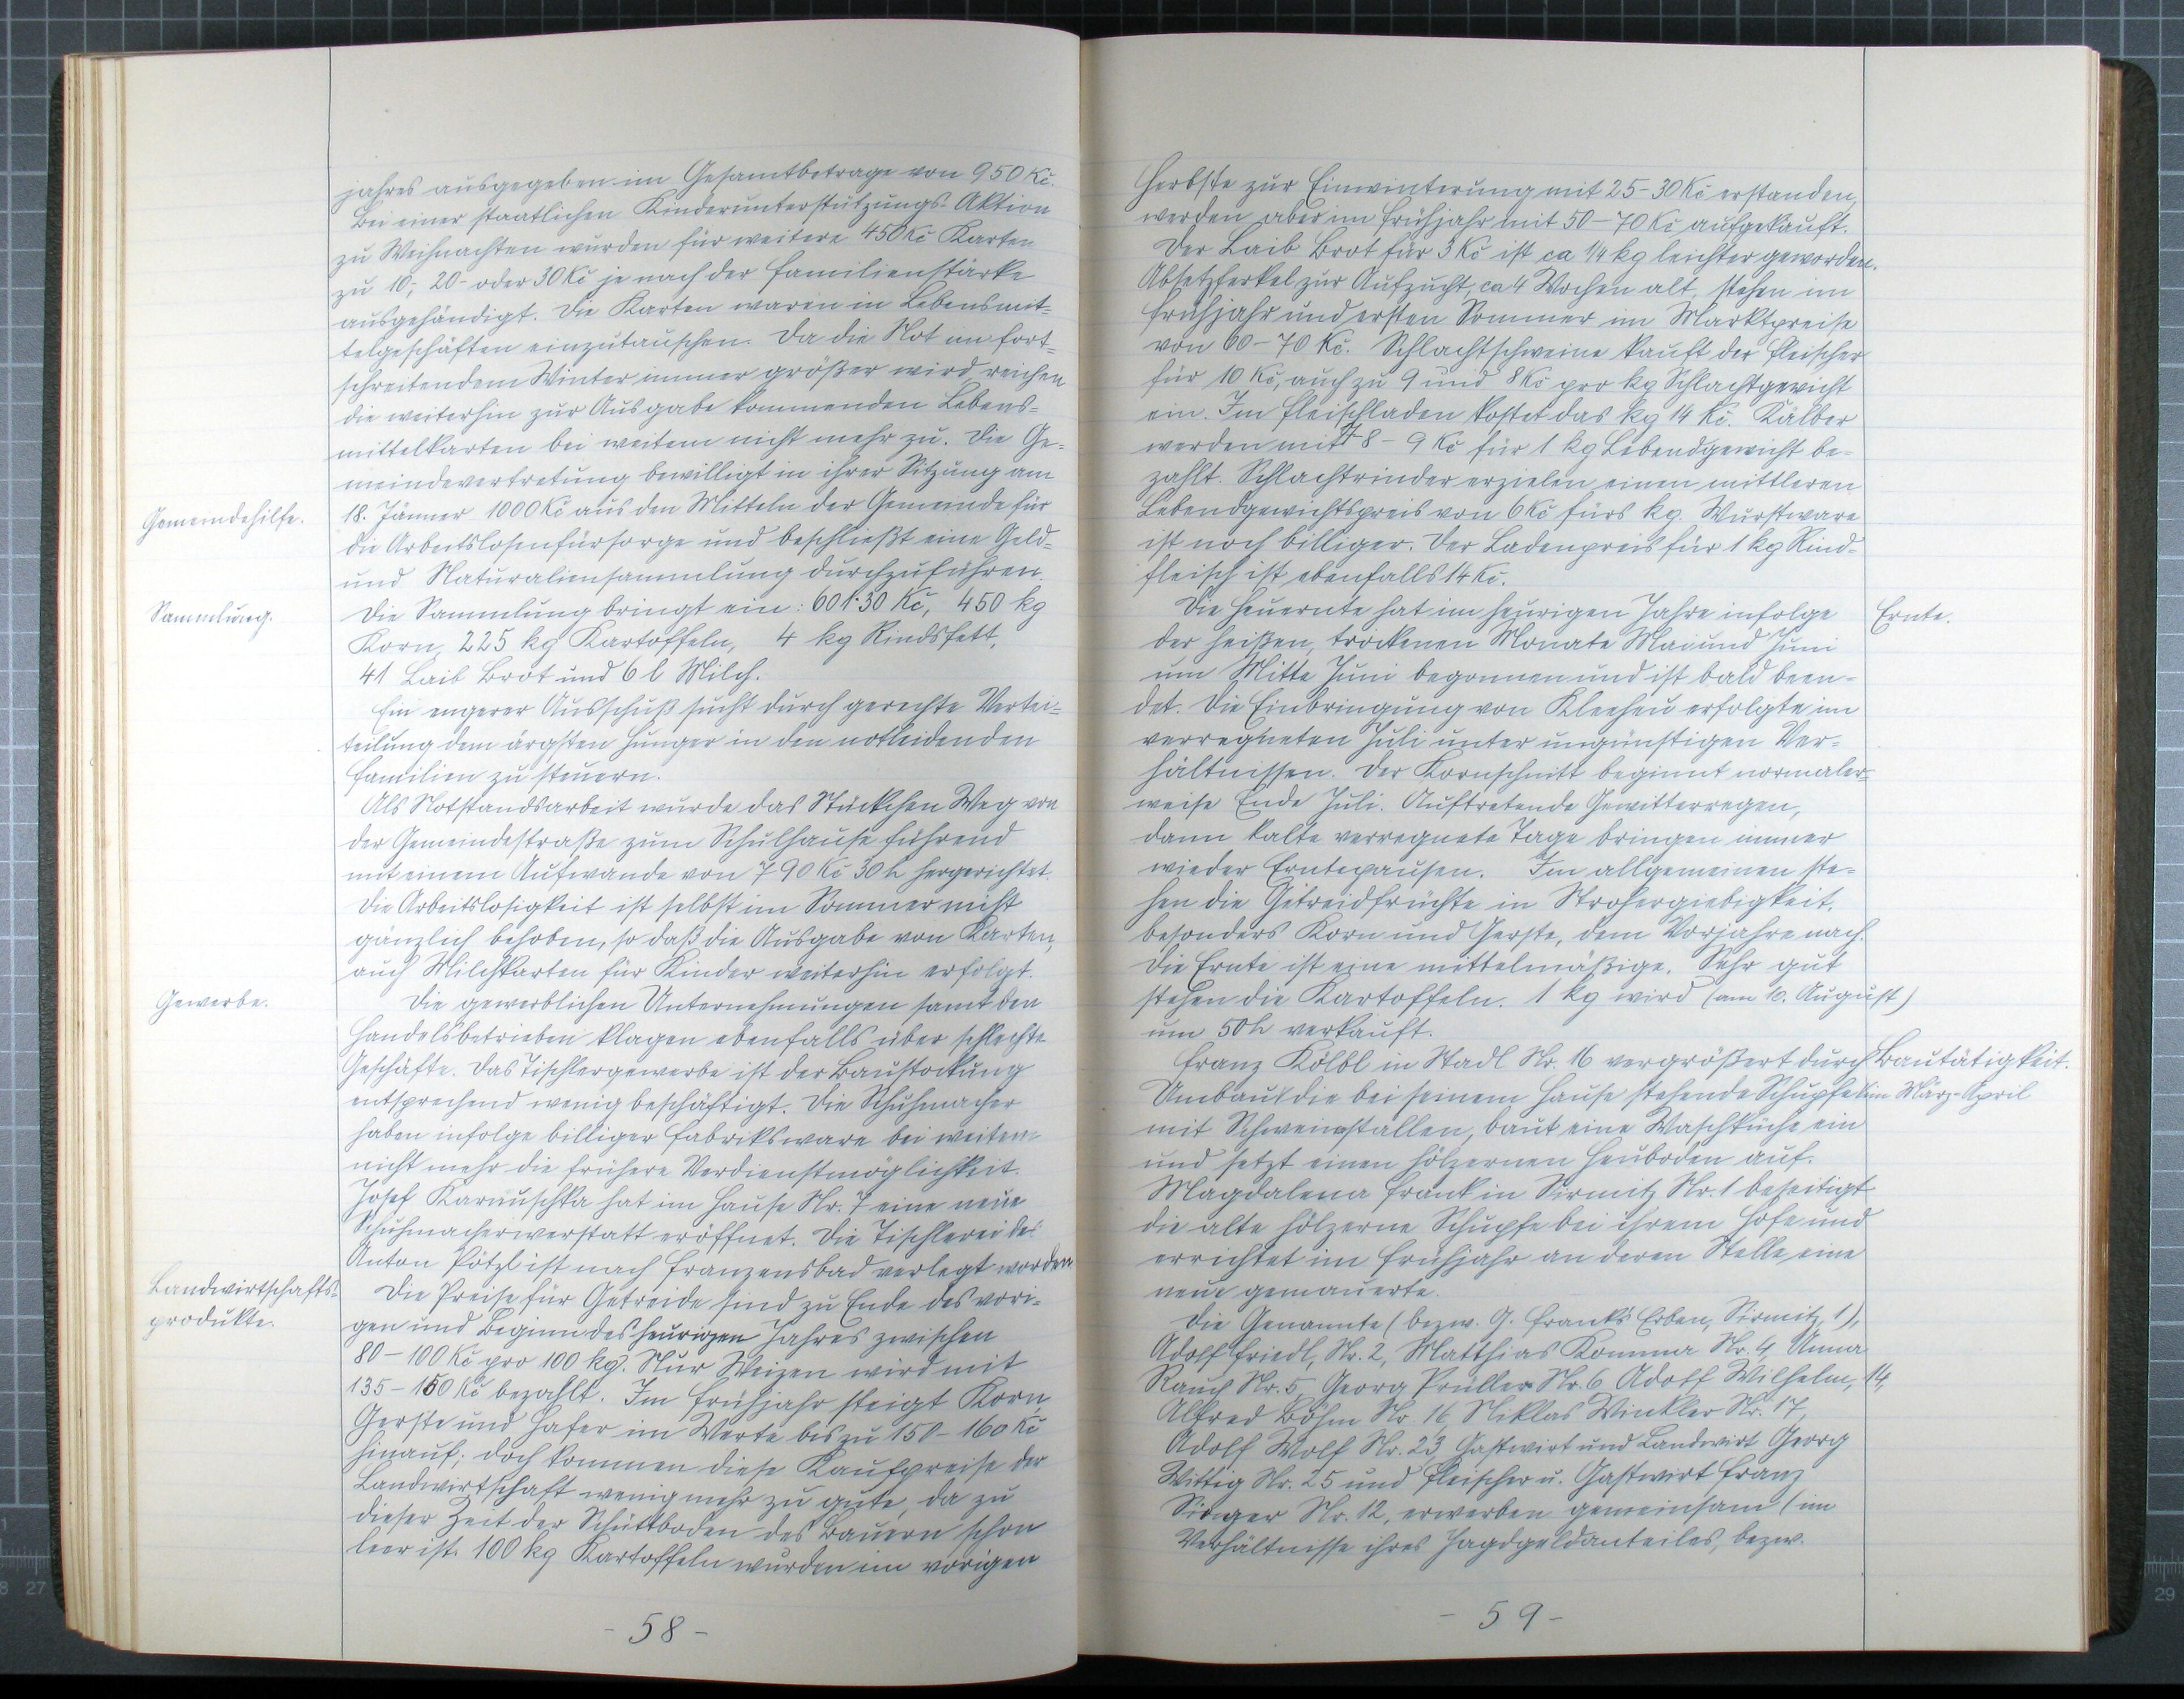 jahres ausgegeben im Gesamtbetrage von 950 Kč.
Bei einer staatlichen Kinderunterstützungs-Aktion
zu Weihnachten wurden für weitere 450 Kč Karten
zu 10-, 20- oder 30 Kč je nach der Familienstärke
ausgehändigt. Die Karten waren in Lebensmit=
telgeschäften einzutauschen. Da die Not im fort=
schreitendem Winter immer größer wird reichen
die weiterhin zur Ausgabe kommenden Lebens=
mittelkarten bei weitem nicht mehr zu. Die Ge=
meindevertretung bewilligt in ihrer Sitzung am
Gemeindehilfe.
18. Jänner 1000 Kč aus den Mitteln der Gemeinde für
die Arbeitslosenfürsorge und beschließt eine Geld=
und Naturaliensammlung durchzuführen.
Sammlung.
Die Sammlung bringt ein: 601·30 Kč, 450 kg
Korn, 225 kg Kartoffeln, 4 kg Rindsfett,
41 Laib Brot und 6 l Milch.
Ein engerer Ausschuß sucht durch gerechte Vertei=
teilung dem ärgsten Hunger in den notleidenden
Familien zu steuern.
Als Notstandsarbeit wurde das Stückchen Weg von
der Gemeindestraße zum Schulhause führend
mit einem Aufwande von 790 Kč 30 h hergerichtet.
Die Arbeitslosigkeit ist selbst im Sommer nicht
gänzlich behoben, so daß die Ausgabe von Karten,
auch Milchkarten für Kinder weiterhin erfolgt.
Gewerbe.
Die gewerblichen Unternehmungen samt den
Handelsbetrieben klagen ebenfalls über schlechte
Geschäfte. Das Tischlergewerbe ist der Baustockung
entsprechend wenig beschäftigt. Die Schuhmacher
haben infolge billiger Fabriksware bei weitem
nicht mehr die frühere Verdienstmöglichkeit.
Josef Karnuschka hat im Hause Nr. 7 eine neue
Schuhmacherwerstatt eröffnet. Die Tischlerei des
Anton Pötzl ist nach Franzensbad verlegt worden
Landwirtschafts=
produkte.
Die Preise für Getreide sind zu Ende des vori=
gen und Beginn des heurigen Jahres zwischen
80-100 Kč pro 100 kg. Nur Weizen wird mit
135-150 Kč bezahlt. Im Frühjahr steigt Korn,
Gerste und Hafer im Werte bis zu 150-160 Kč
hinauf; doch kommen diese Kaufpreise der
Landwirtschaft wenig mehr zu gute, da zu
dieser Zeit der Schüttboden des Bauern schon
leer ist. 100 kg Kartoffeln wurden im vorigen
- 58 -
Herbste zur Einwinterung mit 25-30 Kč erstanden,
werden aber im Frühjahr mit 50-70 Kč aufgekauft.
Der Laib Brot für 3 Kč ist ca 1/4 kg leichter geworden.
Absetzferkel zur Aufzucht, ca 4 Wochen alt, stehen im
Frühjahr und ersten Sommer im Marktpreise
von 60-70 Kč. Schlachtschweine kauft der Fleischer
für 10 Kč, auch zu 9 und 8 Kč pro kg Schlachtgewicht
ein. Im Fleischladen kostet das kg 14 Kč. Kälber
werden mit 7 8-9 Kč für 1 kg Lebendgewicht be=
zahlt. Schlachtrinder erzielen einen mittleren
Lebendgewichtspreis von 6 Kč fürs kg. Wurstware
ist noch billiger. Der Ladenpreis für 1 kg Rind=
fleisch ist ebenfalls 14 Kč.
Die Heuernte hat im heurigen Jahre infolge
Ernte.
der heißen, trockenen Monate Mai und Juni
um Mitte Juni begonnen und ist bald been=
det. Die Einbringung von Kleeheu erfolgte im
verregneten Juli unter ungünstigen Ver=
hältnissen. Der Kornschnitt beginnt normaler=
weise Ende Juli. Auftretende Gewitterregen,
dann kalte verregnete Tage bringen immer
wieder Erntepausen. Im allgemeinen ste=
hen die Getreidfrüchte in Strohergiebigkeit,
besonders Korn und Gerste, dem Vorjahre nach.
Die Ernte ist eine mittelmäßige. Sehr gut
stehen die Kartoffeln. 1 kg wird (am 10. August)
um 50 h verkauft.
Franz Kölbl in Stadl Nr. 16 vergrößert durch
Bautätigkeit.
Umbau die bei seinem Hause stehende Schupfe
im März-April
mit Schweinställen, baut eine Waschküche ein
und setzt einen hölzernen Heuboden auf.
Magdalena Frank in Sirmitz Nr. 1 beseitigt
die alte hölzerne Schupfe bei ihrem Hofe und
errichtet im Frühjahr an deren Stelle eine
neue gemauerte.
Die Genannte (bezw. G. Frank's Erben, Sirmitz, 1),
Adolf Friedl, Nr. 2, Matthias Komma Nr. 4, Anna
Rauch Nr. 5, Georg Prüller Nr. 6 Adolf Wilhelm, 14,
Alfred Böhm Nr. 16, Niklas Winkler Nr. 17,
Adolf Wolf Nr. 23 Gastwirt und Landwirt Georg
Wittig Nr. 25 und Fleischer u. Gastwirt Franz
Singer Nr. 12, erwerben gemeinsam (im
Verhältnisse ihres Jagdgeldanteiles, bezw.
- 59 -